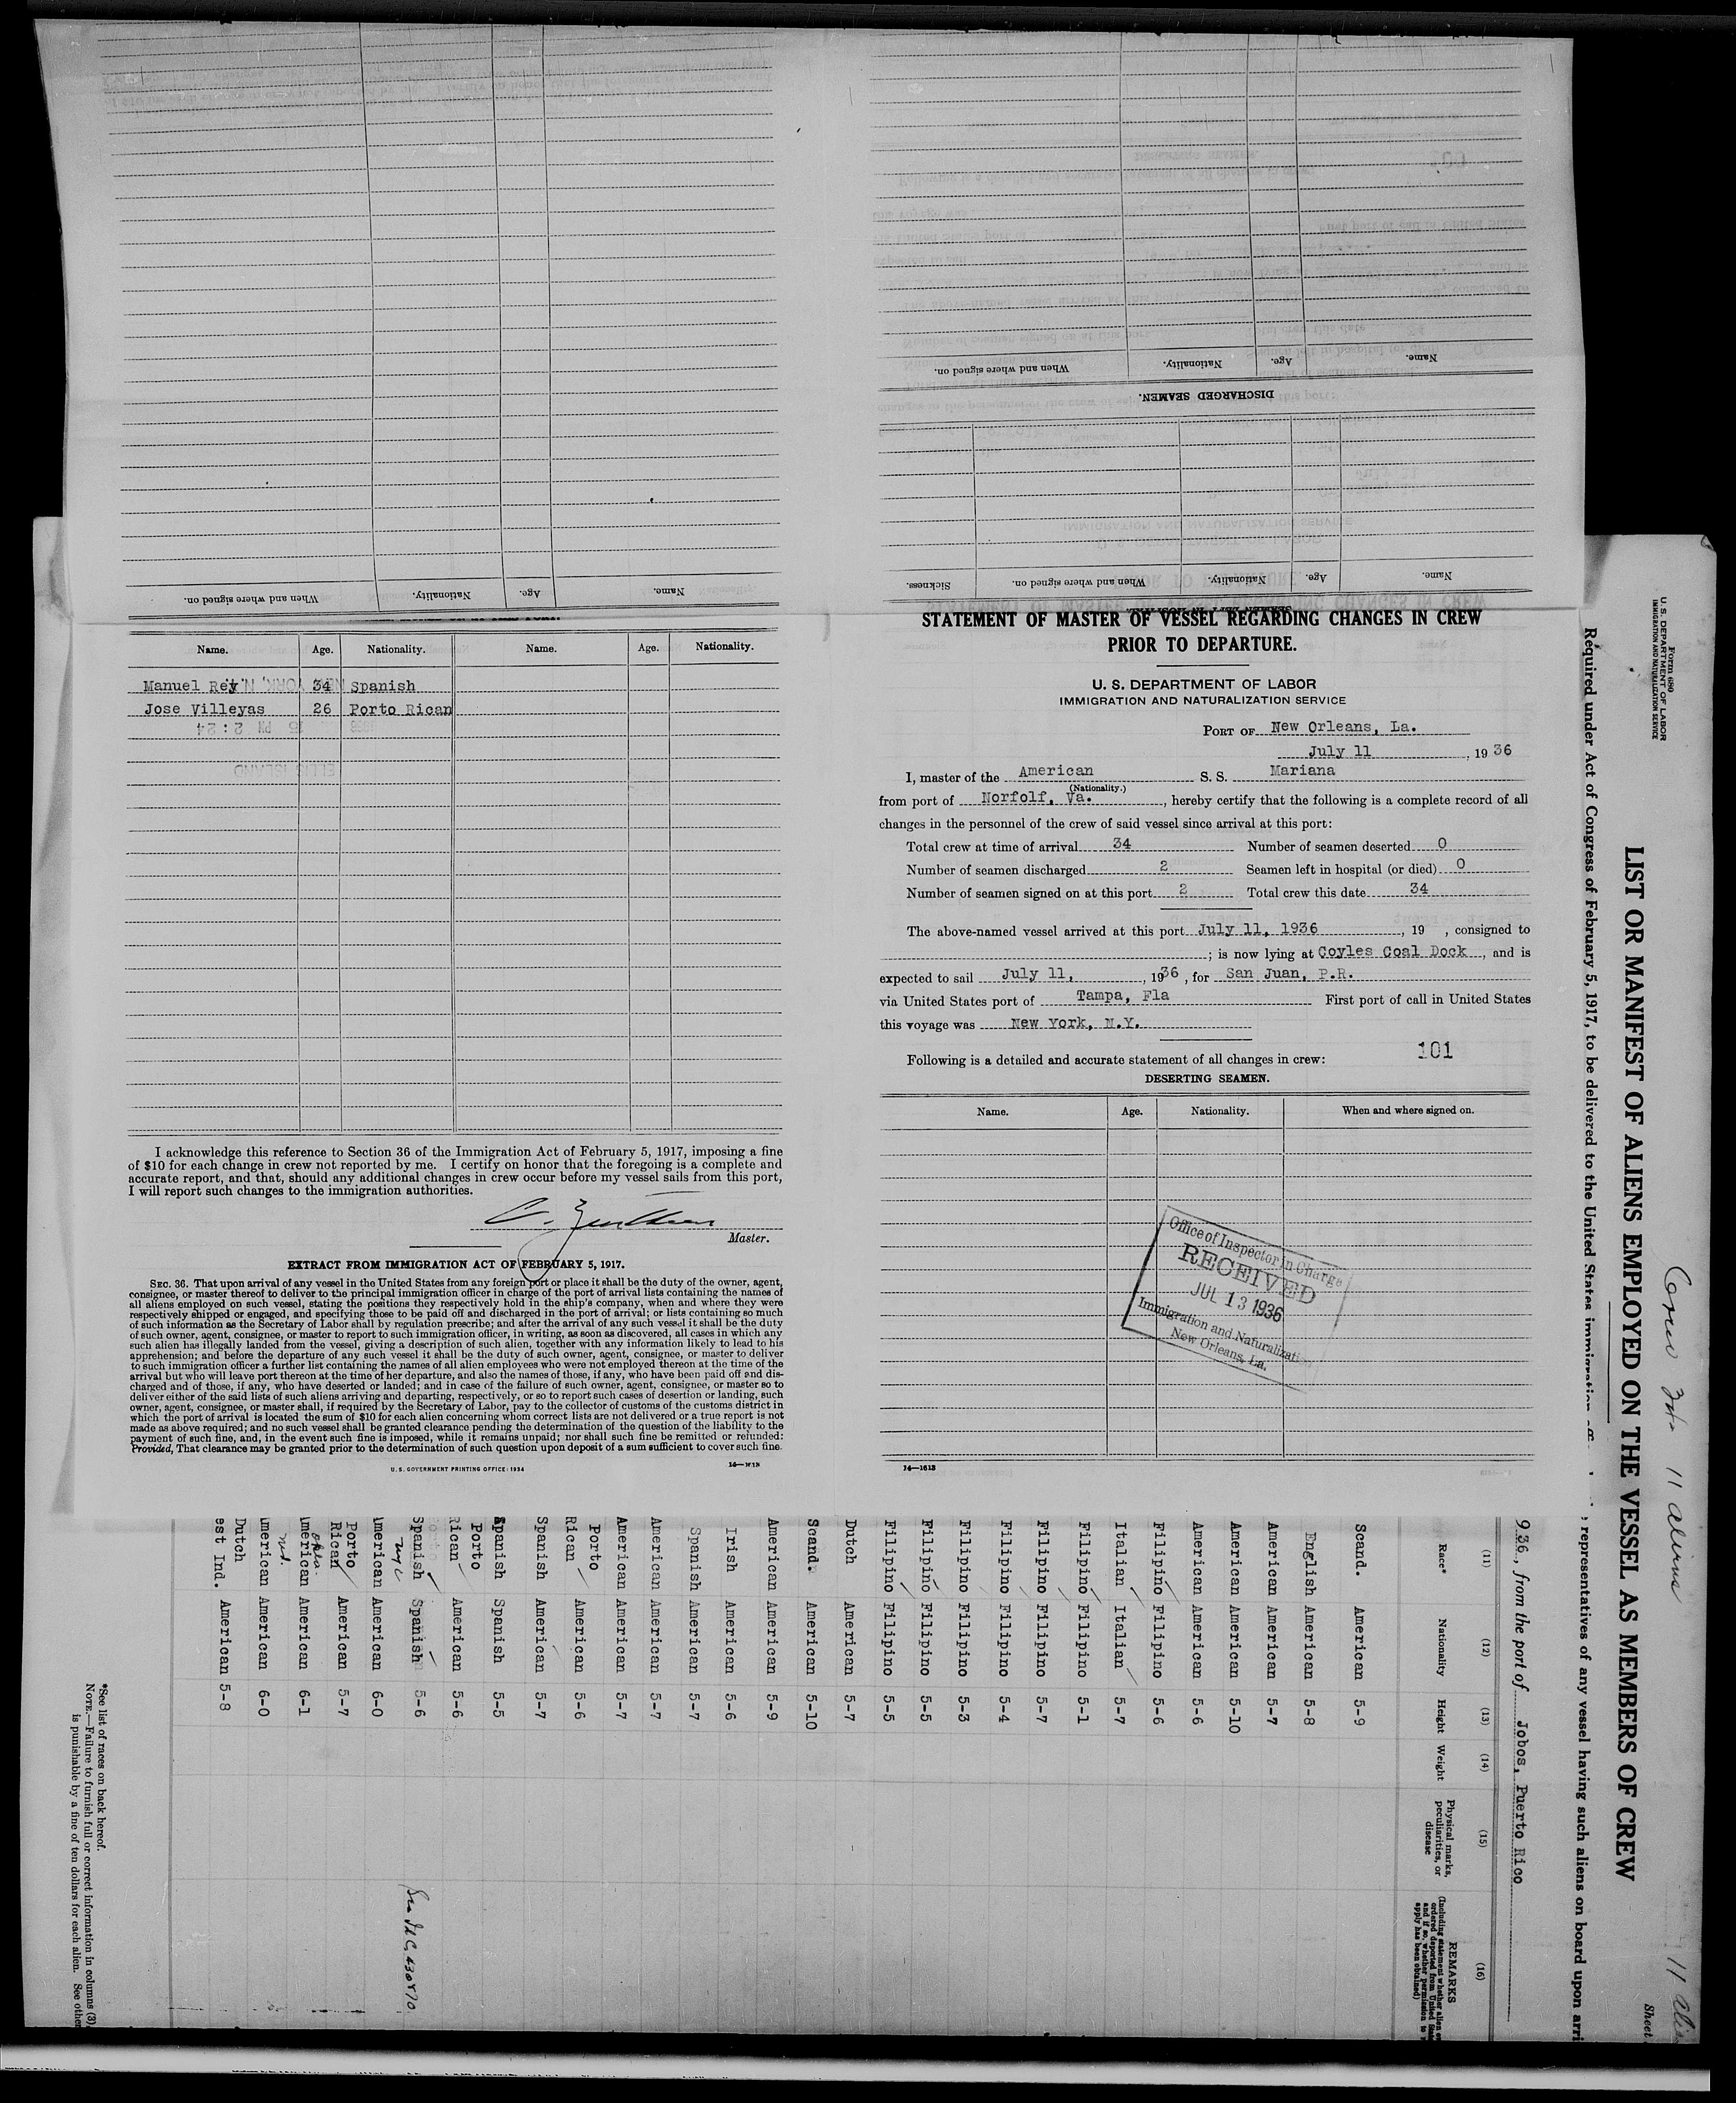 When and where signed on. Nationality. Age. Name.
When and where signed on. Nationality. Age. Name.
DISCHARGED SEAMEN.
Sickness. When and where signed on. Nationality. Age. Name.
Name. Age. Nationality. Name. Age. Nationality.
Manuel Rey 34 Spanish
Jose Villeyas 26 Porto Rican
NEW YORK, N.Y.
15 PM 2:24
ELLIS ISLAND
I acknowledge this reference to Section 36 of the Immigration Act of February 5, 1917, imposing a fine
of $10 for each change in crew not reported by me. I certify on honor that the foregoing is a complete and
accurate report, and that, should any additional changes in crew occur before my vessel sails from this port,
I will report such changes to the immigration authorities.
Master.
EXTRACT FROM IMMIGRATION ACT OF FEBRUARY 5, 1917.
SEC. 36. That upon arrival of any vessel in the United States from any foreign port or place it shall be the duty of the owner, agent,
consignee, or master thereof to deliver to the principal immigration officer in charge of the port of arrival lists containing the names of
all aliens employed on such vessel, stating the positions they respectively hold in the ship's company, when and where they were
respectively shipped or engaged, and specifying those to be paid off and discharged in the port of arrival; or lists containing so much
of such information as the Secretary of Labor shall by regulation prescribe; and after the arrival of any such vessel it shall be the duty
of such owner, agent, consignee, or master to report to such immigration officer, in writing, as soon as discovered, all cases in which any
such alien has illegally landed from the vessel, giving a description of such alien, together with any information likely to lead to his
apprehension; and before the departure of any such vessel it shall be the duty of such owner, agent, consignee, or master to deliver
to such immigration officer a further list containing the names of all alien employees who were not employed thereon at the time of the
arrival but who will leave port thereon at the time of her departure, and also the names of those, if any, who have been paid off and dis-
charged and of those, if any, who have deserted or landed; and in case of the failure of such owner, agent, consignee, or master so to
deliver either of the said lists of such aliens arriving and departing, respectively, or so to report such cases of desertion or landing, such
owner, agent, consignee, or master shall, if required by the Secretary of Labor, pay to the collector of customs of the customs district in
which the port of arrival is located the sum of $10 for each alien concerning whom correct lists are not delivered or a true report is not
made as above required; and no such vessel shall be granted clearance pending the determination of the question of the liability to the
payment of such fine, and, in the event such fine is imposed, while it remains unpaid; nor shall such fine be remitted or refunded:
Provided, That clearance may be granted prior to the determination of such question upon deposit of a sum sufficient to cover such fine.
U. S. GOVERNMENT PRINTING OFFICE: 1934
STATEMENT OF MASTER OF VESSEL REGARDING CHANGES IN CREW
PRIOR TO DEPARTURE.
U. S. DEPARTMENT OF LABOR
IMMIGRATION AND NATURALIZATION SERVICE
PORT OF New Orleans, La.
July 11, 1936
I, master of the American S. S. Mariana
(Nationality.)
from port of Norfolf, Va., hereby certify that the following is a complete record of all
changes in the personnel of the crew of said vessel since arrival at this port:
Total crew at time of arrival 34 Number of seamen deserted 0
Number of seamen discharged 2 Seamen left in hospital (or died) 0
Number of seamen signed on at this port 2 Total crew this date 34
The above-named vessel arrived at this port July 11, 1936, 19 , consigned to
; is now lying at Coyles Coal Dock, and is
expected to sail July 11, , 1936, for San Juan, P.R.
via United States port of Tampa, Fla First port of call in United States
this voyage was New York, N.Y.
Following is a detailed and accurate statement of all changes in crew: 101
DESERTING SEAMEN.
Name. Age. Nationality. When and where signed on.
Office of Inspector in Charge
RECEIVED
JUL 13 1936
Immigration and Naturalization
New Orleans, La.
14—1613
Form 680
U. S. DEPARTMENT OF LABOR
IMMIGRATION AND NATURALIZATION SERVICE
11 aliens
Sheet
LIST OR MANIFEST OF ALIENS EMPLOYED ON THE VESSEL AS MEMBERS OF CREW
Required under Act of Congress of February 5, 1917, to be delivered to the United States immigration
representatives of any vessel having such aliens on board upon arri
936, from the port of Jobos, Puerto Rico
(11) (12) (13) (14) (15) (16)
Race* Nationality Height Weight Physical marks, peculiarities, or disease REMARKS
Scand. American 5-9
English American 5-8
American American 5-7
American American 5-10
American American 5-6
Filipino Filipino 5-6
Italian Italian 5-7
Filipino Filipino 5-1
Filipino Filipino 5-7
Filipino Filipino 5-4
Filipino Filipino 5-3
Filipino Filipino 5-5
Filipino Filipino 5-5
Dutch American 5-7
Scand. American 5-10
American American 5-9
Irish American 5-6
Spanish American 5-7
American American 5-7
American American 5-7
Porto Rican American 5-6
Spanish American 5-7
Spanish Spanish 5-5
Porto Rican American 5-6
Spanish Spanish 5-6
American American 6-0
Porto Rican American 5-7
American American 6-1
American American 6-0
Dutch
est Ind. American 5-8
*See list of races on back hereof.
NOTE.—Failure to furnish full or correct information in columns (3)
is punishable by a fine of ten dollars for each alien. See other